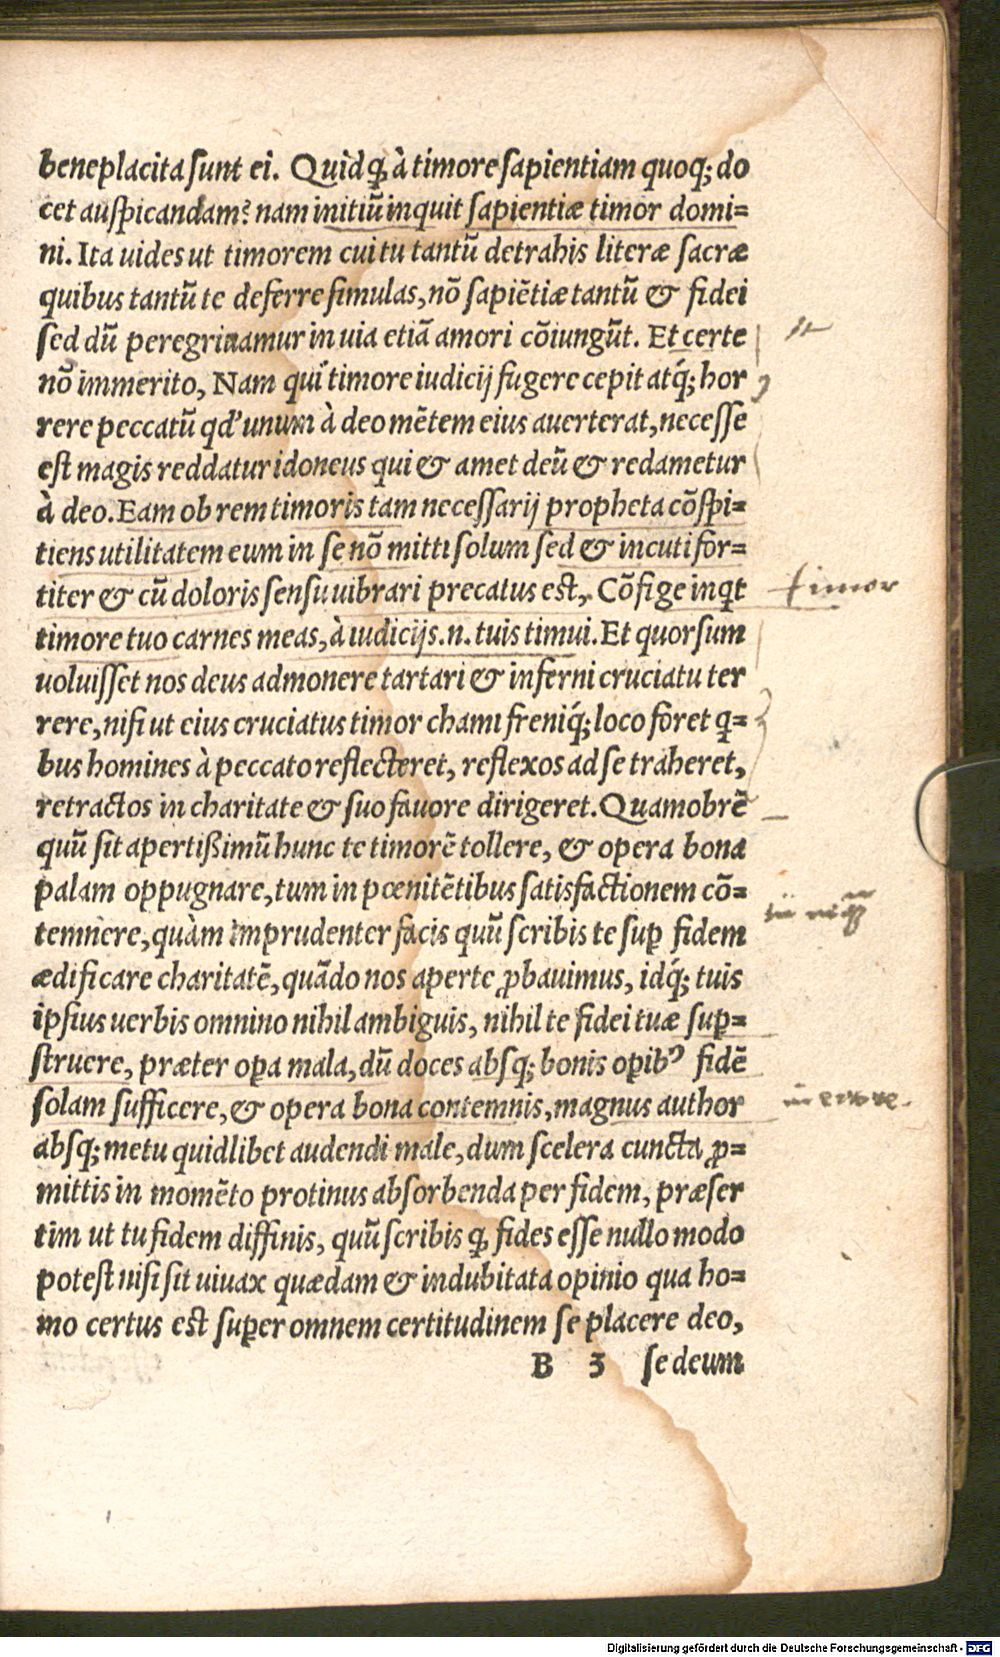 beneplacita sunt ei. Quid q̃ à timore sapientiam quoq; do
cet auspicandam? nam initiũ inquit sapientiæ timor domi=
ni. Ita uides ut timorem cui tu tantũ detrahis literæ sacræ
quibus tantũ te deferre simulas, nõ sapiẽtiæ tantũ & fidei
sed dũ peregrinamur in uia etiã amori cõiungũt. Et certe
nõ immerito, Nam qui timore iudicij fugere cepit atq́; hor
rere peccatũ qđ unum à deo mẽtem eius auerterat, necesse
est magis reddatur idoneus qui & amet deũ & redametur
à deo. Eam ob rem timoris tam necessarij propheta cõspi=
tiens utilitatem eum in se nõ mitti solum sed & incuti for=
titer & cũ doloris sensu uibrari precatus est, Cõfige inqt
timore tuo carnes meas, à iudicijs.n. tuis timui. Et quorsum
uoluisset nos deus admonere tartari & inferni cruciatu ter
rere, nisi ut eius cruciatus timor chami freniq́; loco foret q=
bus homines à peccato reflecteret, reflexos ad se traheret,
retractos in charitate & suo fauore dirigeret. Quamobrẽ
quũ sit apertißimũ hunc te timorẽ tollere, & opera bona
palam oppugnare, tum in pœnitẽtibus satisfactionem cõ=
temnere, quàm imprudenter facis quũ scribis te suꝑ fidem
ædificare charitatẽ, quãdo nos aperte ꝓbauimus, idq́; tuis
ipsius uerbis omnino nihil ambiguis, nihil te fidei tuæ suꝑ=
struere, præter oꝑa mala, dũ doces absq; bonis oꝑibꝰ fidẽ
solam sufficere, & opera bona contemnis, magnus author
absq; metu quidlibet audendi male, dum scelera cuncta ꝓ=
mittis in momẽto protinus absorbenda per fidem, præser
tim ut tu fidem diffinis, quũ scribis q̃ fides esse nullo modo
potest nisi sit uiuax quædam & indubitata opinio qua ho=
mo certus est super omnem certitudinem se placere deo,
B 3 se deum
timor
Digitalisierung gefördert durch die Deutsche Forschungsgemeinschaft - DFG